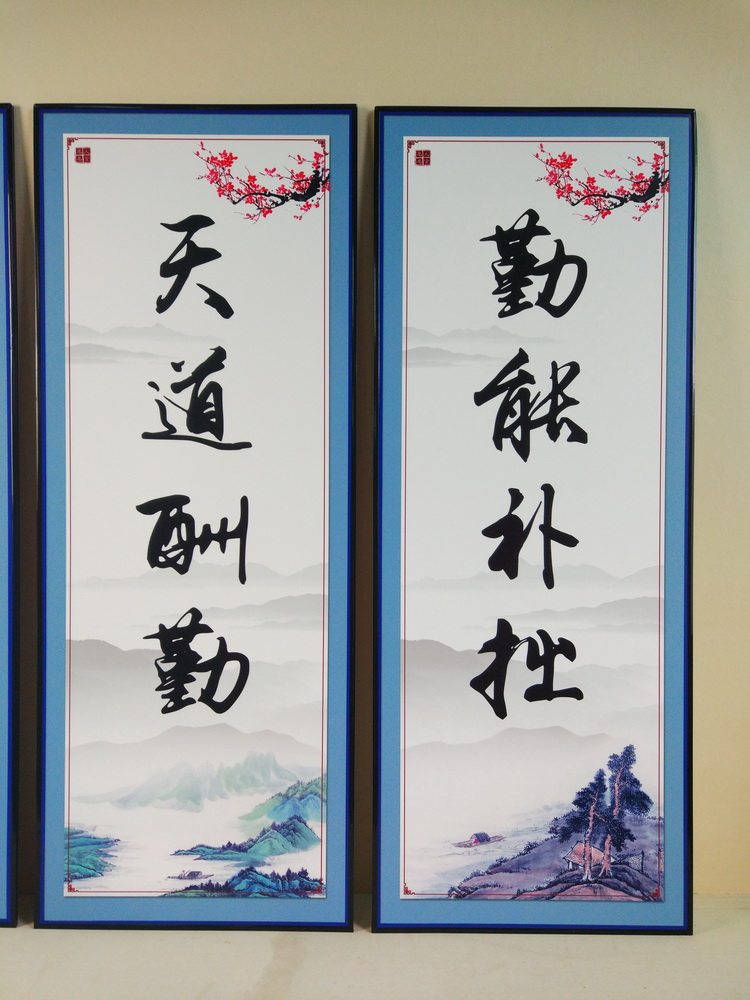 天道酬勤
勤能补拙